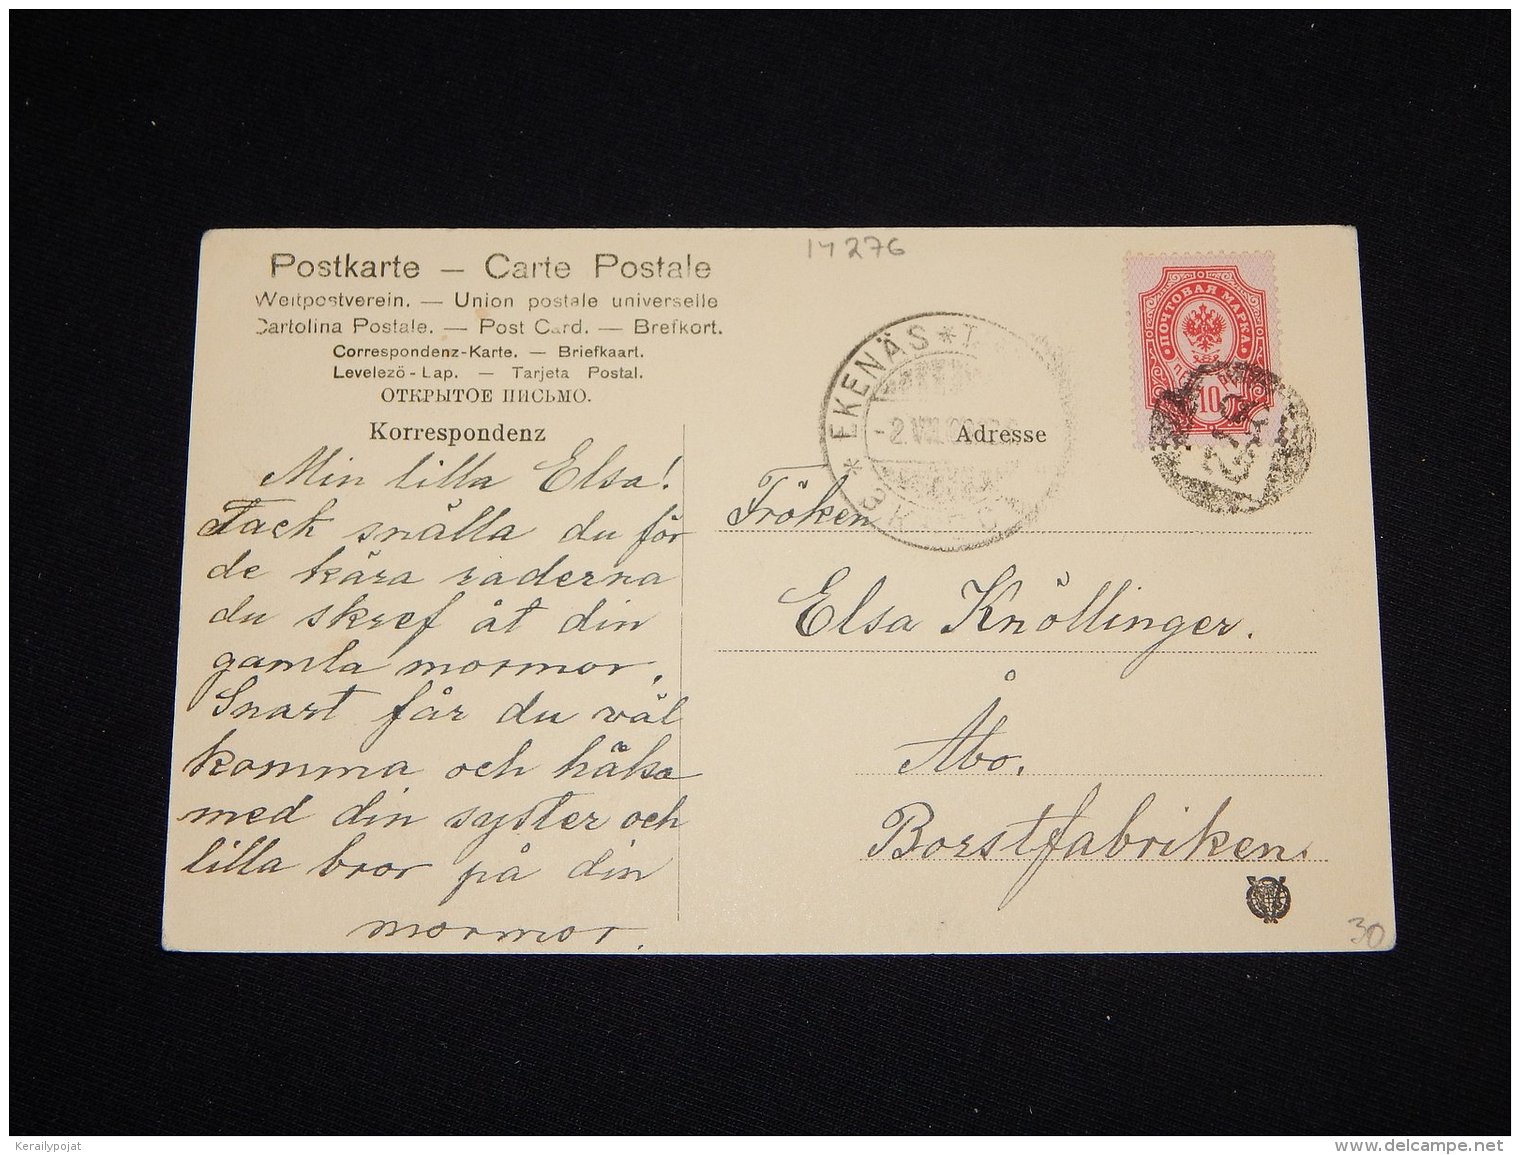 14276
Postkarte — Carte Postale
Weltpostverein. — Union postale universelle
Cartolina Postale. — Post Card. — Brefkort.
Correspondenz-Karte. — Briefkaart.
Levelező-Lap. — Tarjeta Postal.
ОТКРЫТОЕ ПИСЬМО.
Korrespondenz
Adresse
ПОЧТОВАЯ МАРКА
10
* EKENÄS *
Min lilla Elsa!
Tack snälla du för
de kära raderna
du skref åt din
gamla mormor.
Snart får du väl
komma och hälsa
med din syster och
lilla bror på din
mormor.
Fröken
Elsa Knöllinger.
Åbo.
Borstfabriken.
30
Kerailypojat
delcampe.net